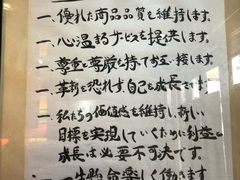 一、優れた商品品質を維持します。
一、心温まるサービスを提供します。
一、尊重と尊厳を持ってお互い接します。
一、革新を恐れず、自己を成長させます。
一、私たちの価値感を維持し、高い
目標を実現していくために利益ある
成長は必要不可欠です。
一、一生懸命楽しく働きます